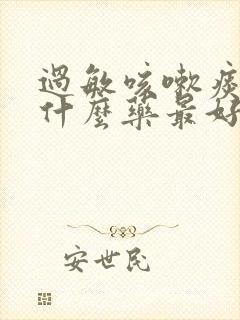 過敏咳嗽痰
什麼藥最好
安世民